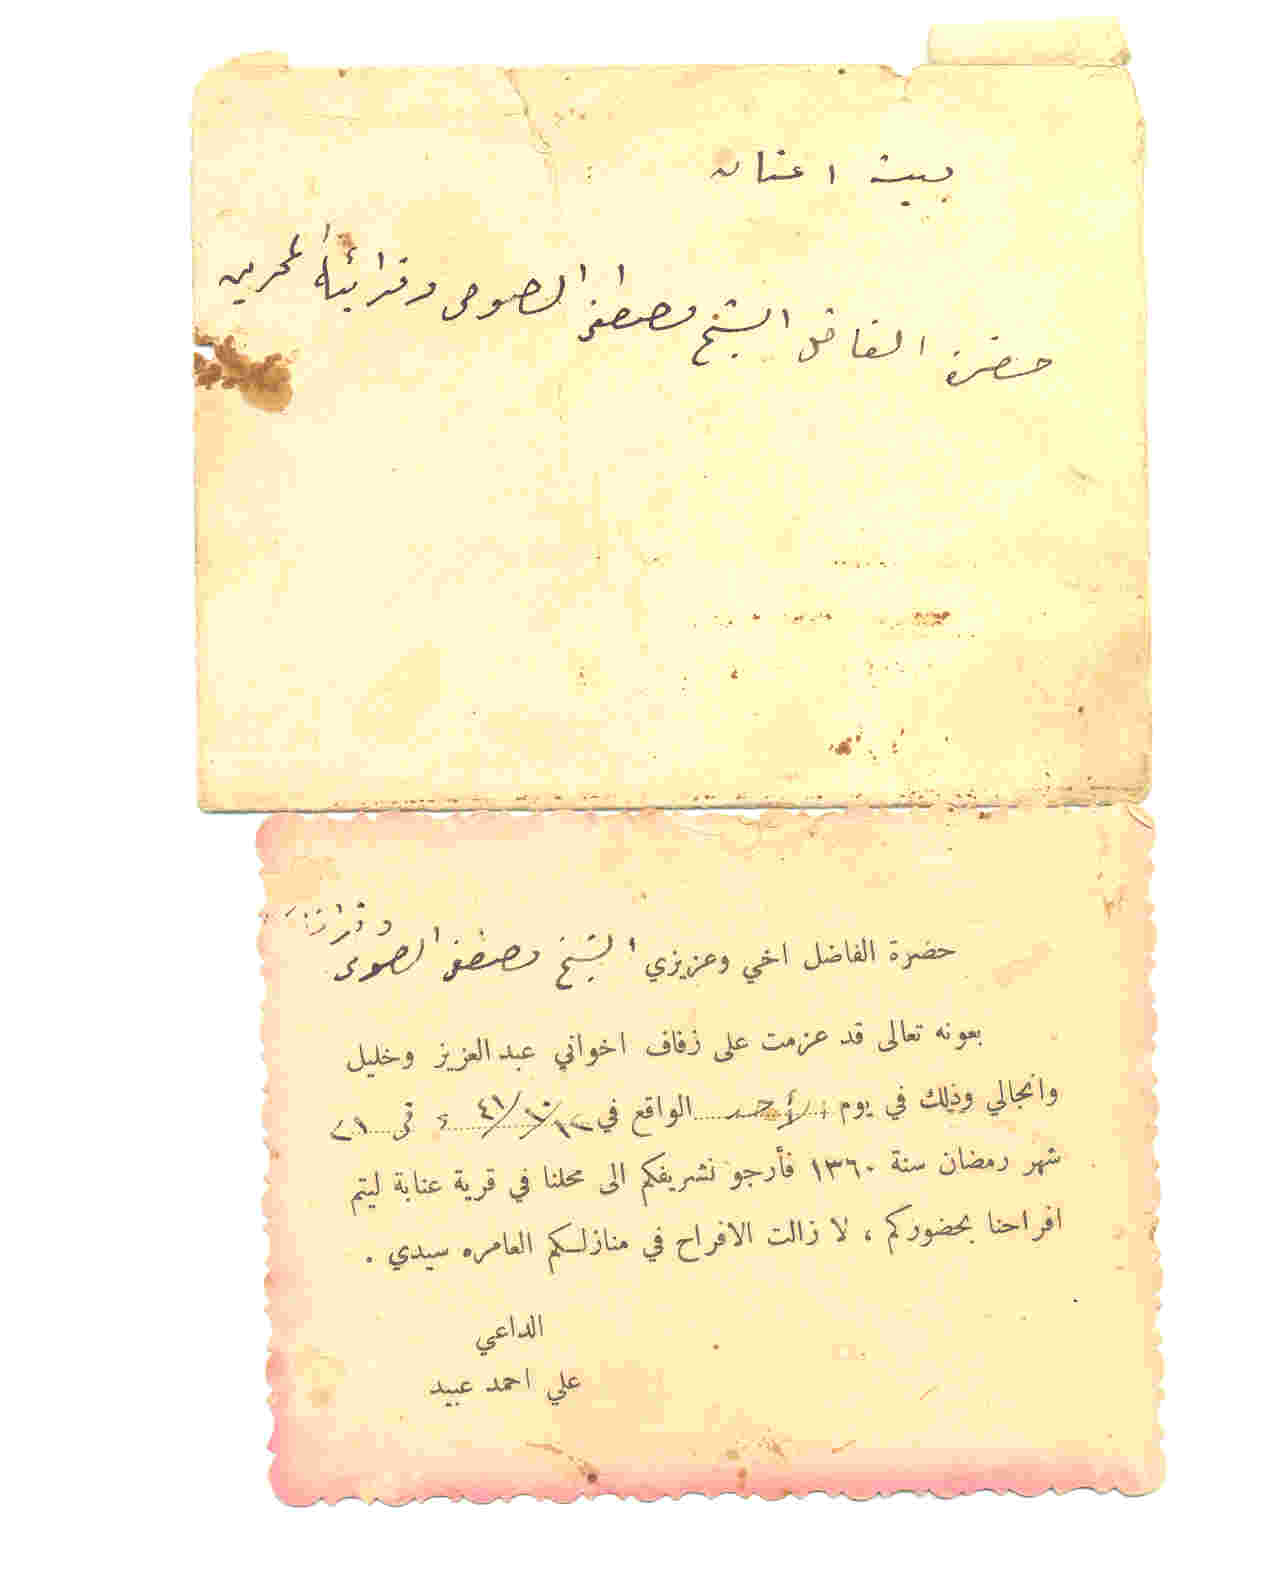 بيت اعنان
حضرة الفاضل الشيخ مصطفى الصوص وقرائبه المحترمين
حضرة الفاضل اخي وعزيزي الشيخ مصطفى الصوص
بعونه تعالى قد عزمت على زفاف اخواني عبد العزيز وخليل
وانجالي وذلك في يوم الأحد الواقع في ١٢/١٠/٤١ في ٢١
شهر رمضان سنة ١٣٦٠ فأرجو تشريفكم الى محلنا في قرية عنابة ليتم
افراحنا بحضوركم ، لا زالت الافراح في منازلكم العامره سيدي .
الداعي
علي احمد عبيد